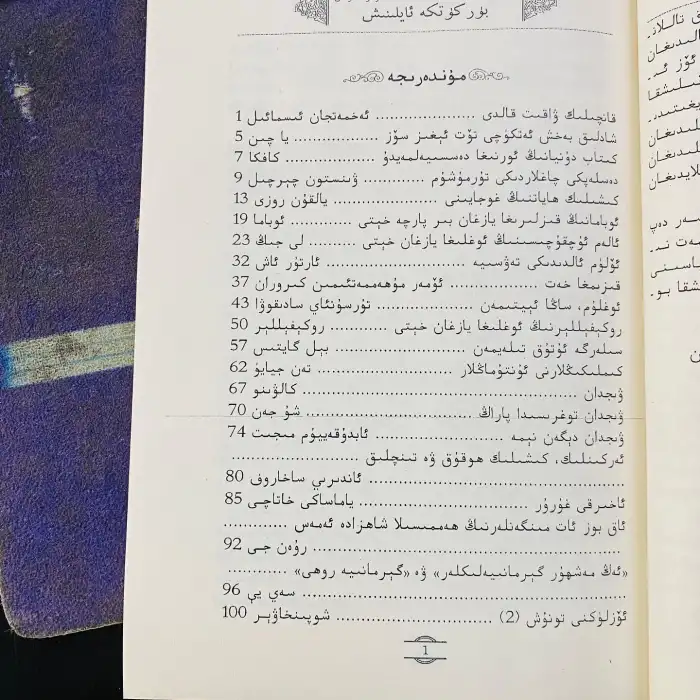 بۈركۈتكە ئايلىنىش
مۇندەرىجە
قانچىلىك ۋاقىت قالدى ..................... ئەخمەتجان ئىسمائىل 1
شادلىق بەخش ئەتكۈچى تۆت ئېغىز سۆز ................ يا چىن 5
كىتاب دۇنيانىڭ ئورنىغا دەسسىيەلمەيدۇ ................. كافكا 7
دەسلەپكى چاغلاردىكى تۇرمۇشۇم ............ ۋىنستون چېرچىل 9
كىشىلىك ھاياتنىڭ غوجايىنى .................. يالقۇن روزى 13
ئوبامانىڭ قىزلىرىغا يازغان بىر پارچە خېتى .......... ئوباما 19
ئالەم ئۇچقۇچىسىنىڭ ئوغلىغا يازغان خېتى .......... لى جىڭ 23
ئۆلۈم ئالدىدىكى تەۋسىيە ................... ئارتۇر ئاش 32
قىزىمغا خەت ................ ئۆمەر مۇھەممەتئىمىن كىروران 37
ئوغلۇم، ساڭا ئېيتىمەن ................. تۇرسۇنئاي سادىقوۋا 43
روكېفېللېرنىڭ ئوغلىغا يازغان خېتى ........... روكېفېللېر 50
سىلەرگە ئۇتۇق تىلەيمەن ....................... بېل گايتىس 57
كىملىكىڭلارنى ئۇنتۇماڭلار ...................... تەن جيايۇ 62
ۋىجدان ........................................ كالۋىنو 67
ۋىجدان توغرىسىدا پاراڭ ............................ شۇ جەن 70
ۋىجدان دېگەن نېمە .................... ئابدۇقەييۇم مىجىت 74
ئەركىنلىك، كىشىلىك ھوقۇق ۋە تىنچلىق .....................
........................................ ئاندىرېي ساخاروف 80
ئاخىرقى غۇرۇر ............................ ياماساكى خاتاچى 85
ئاق بوز ئات مىنگەنلەرنىڭ ھەممىسىلا شاھزادە ئەمەس ...........
.................................................. رۇەن جى 92
«ئەڭ مەشھۇر گېرمانىيەلىكلەر» ۋە «گېرمانىيە روھى» ...........
.................................................. سەي يې 96
ئۆزلۈكنى تونۇش (2) .......................... شوپىنخاۋېر 100
1
ئۆز ئە
سەر دەپ